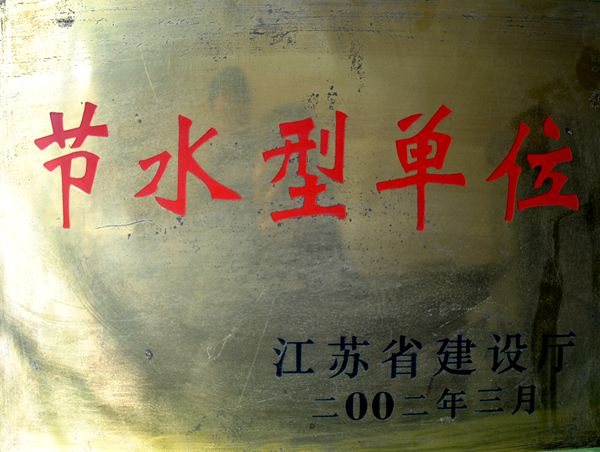 节水型单位
江苏省建设厅
二00二年三月